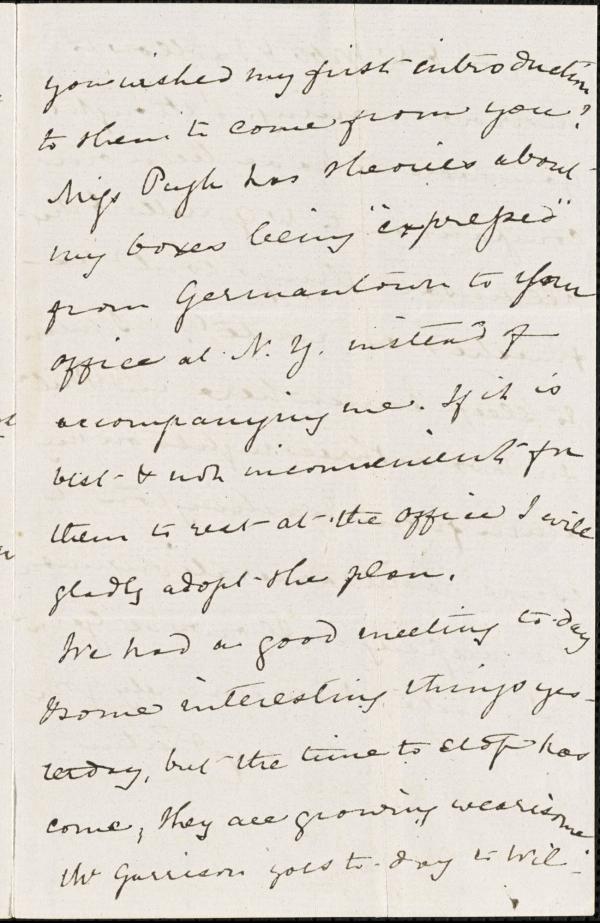 you wished my first introduction
to them to come from you?
Miss Pugh has theories about
my boxes being "expressed"
from Germantown to your
office at N. Y. instead of
accompanying me. If it is
best & not inconvenient for
them to rest at the office I will
gladly adopt the plan.
We had a good meeting to-day
& some interesting things yes-
terday, but the time to stop has
come, they are growing wearisome
Mr Garrison goes to-day to Wil-